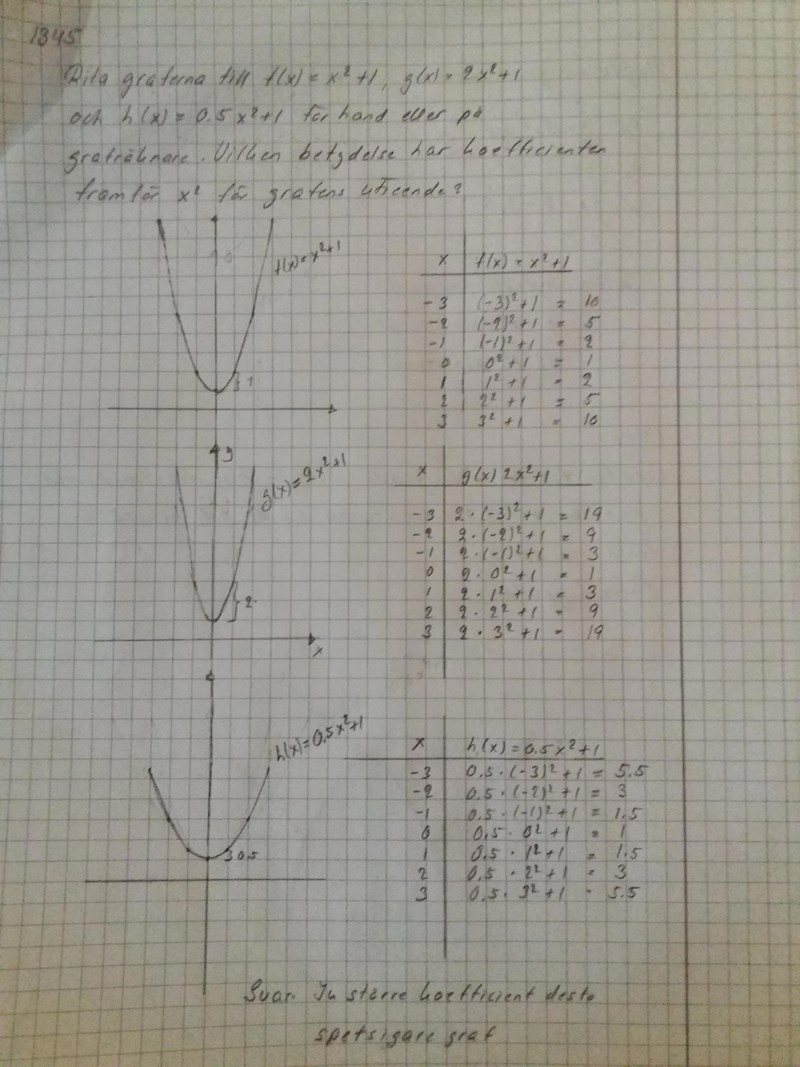 1345
Rita graferna till f(x) = x²+1, g(x) = 2x²+1
och h(x) = 0.5x²+1 för hand eller på
grafräknare. Vilken betydelse har koefficienten
framför x² för grafens utseende?
f(x)=x²+1
1
x f(x) = x²+1
-3 (-3)²+1 = 10
-2 (-2)²+1 = 5
-1 (-1)²+1 = 2
0 0²+1 = 1
1 1²+1 = 2
2 2²+1 = 5
3 3²+1 = 10
y
g(x)=2x²+1
2
x
x g(x) 2x²+1
-3 2·(-3)²+1 = 19
-2 2·(-2)²+1 = 9
-1 2·(-1)²+1 = 3
0 2·0²+1 = 1
1 2·1²+1 = 3
2 2·2²+1 = 9
3 2·3²+1 = 19
h(x)=0.5x²+1
0.5
x h(x)=0.5x²+1
-3 0.5·(-3)²+1 = 5.5
-2 0.5·(-2)²+1 = 3
-1 0.5·(-1)²+1 = 1.5
0 0.5·0²+1 = 1
1 0.5·1²+1 = 1.5
2 0.5·2²+1 = 3
3 0.5·3²+1 = 5.5
Svar. Ju större koefficient desto
spetsigare graf